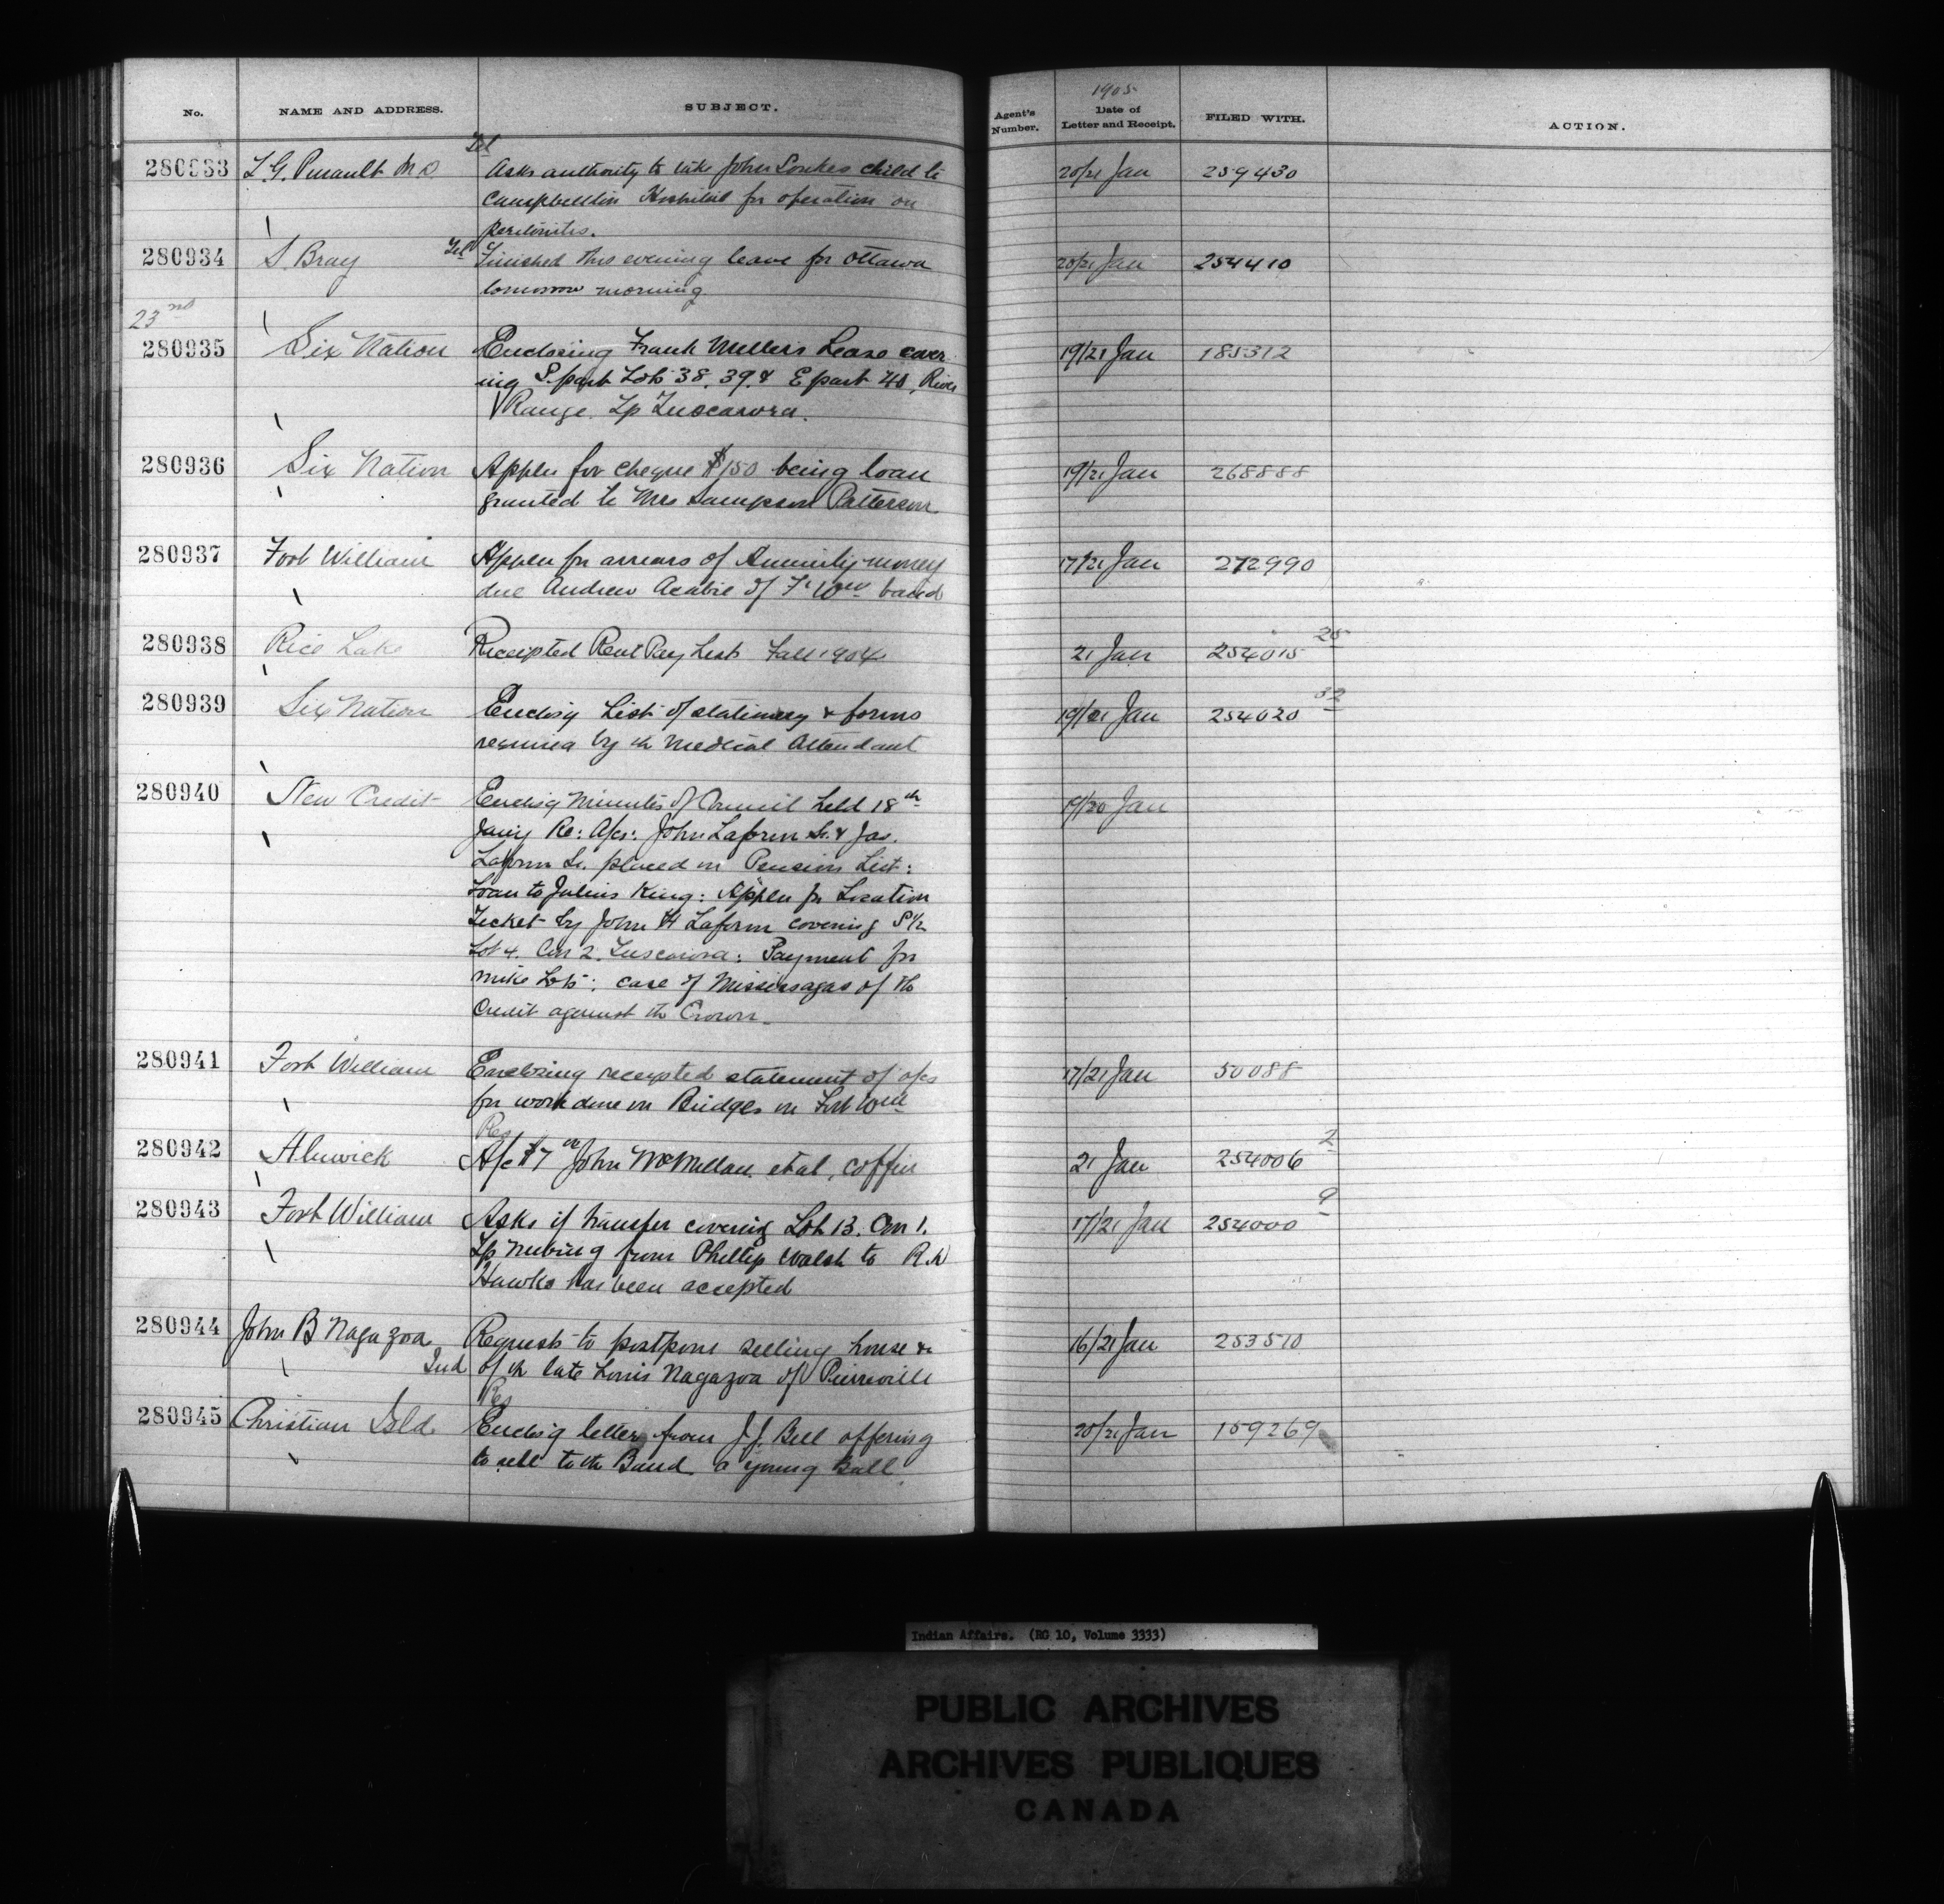 No. NAME AND ADDRESS. SUBJECT. Agent's Number. 1905 Date of Letter and Receipt. FILED WITH. ACTION.
Tel
280933 L. G. Pinault M.D. Asks authority to take John Soukes child to 20/21 Jan 259430
Campbellton Hospital for operation on
peritonitis.
280934 S. Bray Tel Finished this evening leave for Ottawa 20/21 Jan 254410
tomorrow morning
23rd
280935 Six Nation Enclosing Frank Millers Lease cover 19/21 Jan 185312
ing S. part Lots 38, 39, & E part 40, River
Range. Tp Tuscarora.
280936 Six Nation Applen for cheque $150 being loan 19/21 Jan 268888
granted to Mrs Sampson Patterson
280937 Fort William Applen for arrears of Annuity money 17/21 Jan 272990
due Andrew of Ft Wm band
280938 Rice Lake Receipted Rent Pay List Fall 1904 21 Jan 254015 25
280939 Six Nation Enclosg List of stationery & forms 19/21 Jan 254020 32
required by th Medical Attendant
280940 New Credit Enclosg Minutes of Council held 18th 19/20 Jan
Jany Re: A/cs: John Laform Sr. & Jas.
Laform Sr. placed on Pension List:
Loan to Julius King: Applen for Location
Ticket by John H Laform covering S 1/2
Lot 4. Con 2. Tuscarora: Payment for
Lots: case of Mississagas of the
Credit against th Crown.
280941 Fort William Enclosing receipted statement of a/cs 17/21 Jan 50088
for work done on Bridges on Fort Wm
Res
280942 Alnwick A/c $7 00 John McMillan et al, coffin 21 Jan 254006 2
280943 Fort William Asks if transfer covering Lot 13. Con 1. 17/21 Jan 254000 9
Tp Neebing from Phillip Walsh to R. W
Hawks has been accepted
280944 John B Nagazoa Requests to postpone selling house &c 16/21 Jan 253510
Ind of th late Louis Nagazoa of Pierreville
Res
280945 Christian Isld. Enclosg letter from J. J. Bell offering 20/21 Jan 159269
to sell to th Band a young Bull
Indian Affairs. (RG 10, Volume 3333)
PUBLIC ARCHIVES
ARCHIVES PUBLIQUES
CANADA